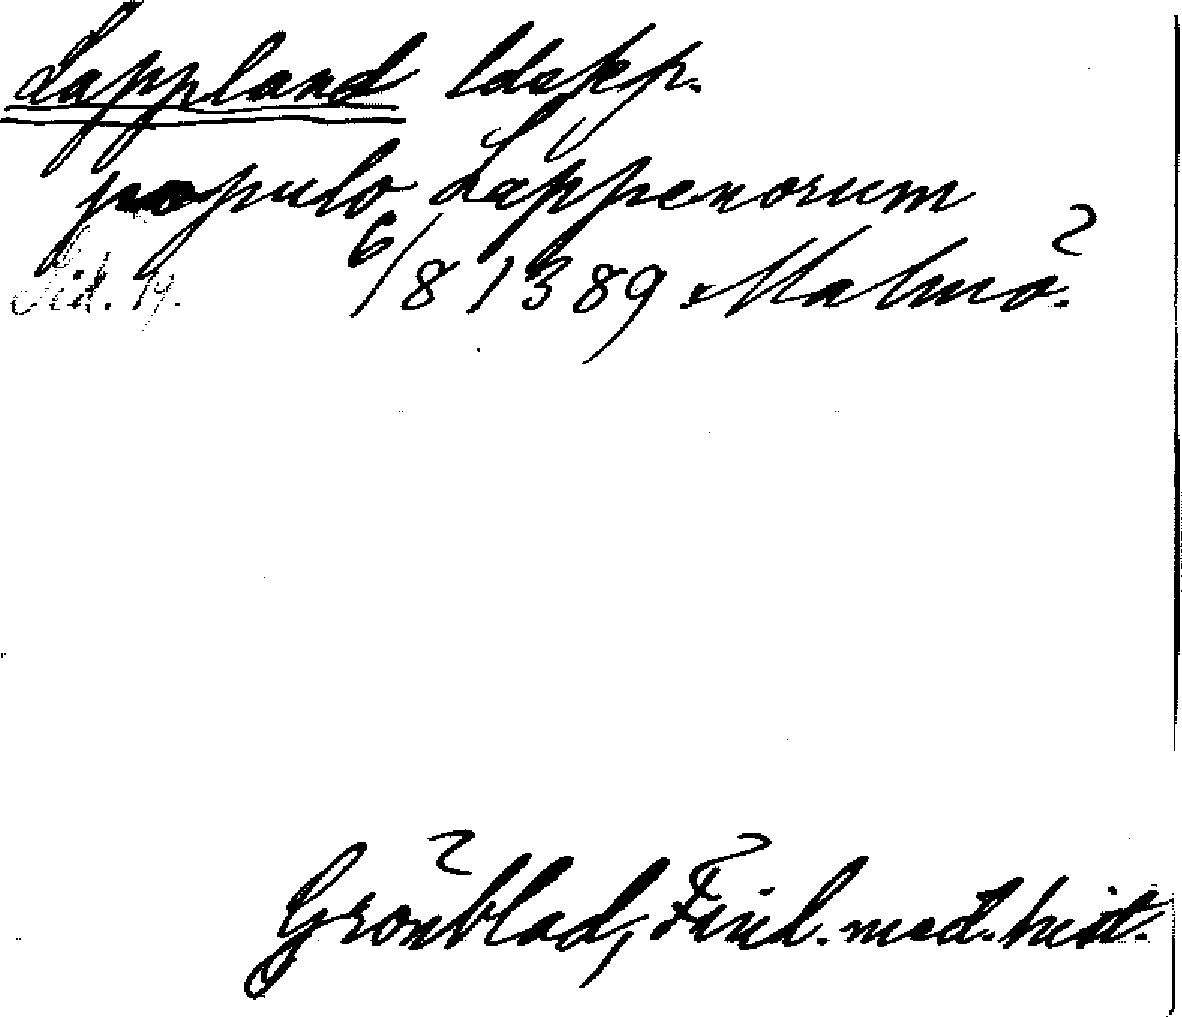 Lappland ldskp.
populo Lappenorum
Sid. 19. 6/8 1389 Malmö.
Grönblad, Finl. med. hist.